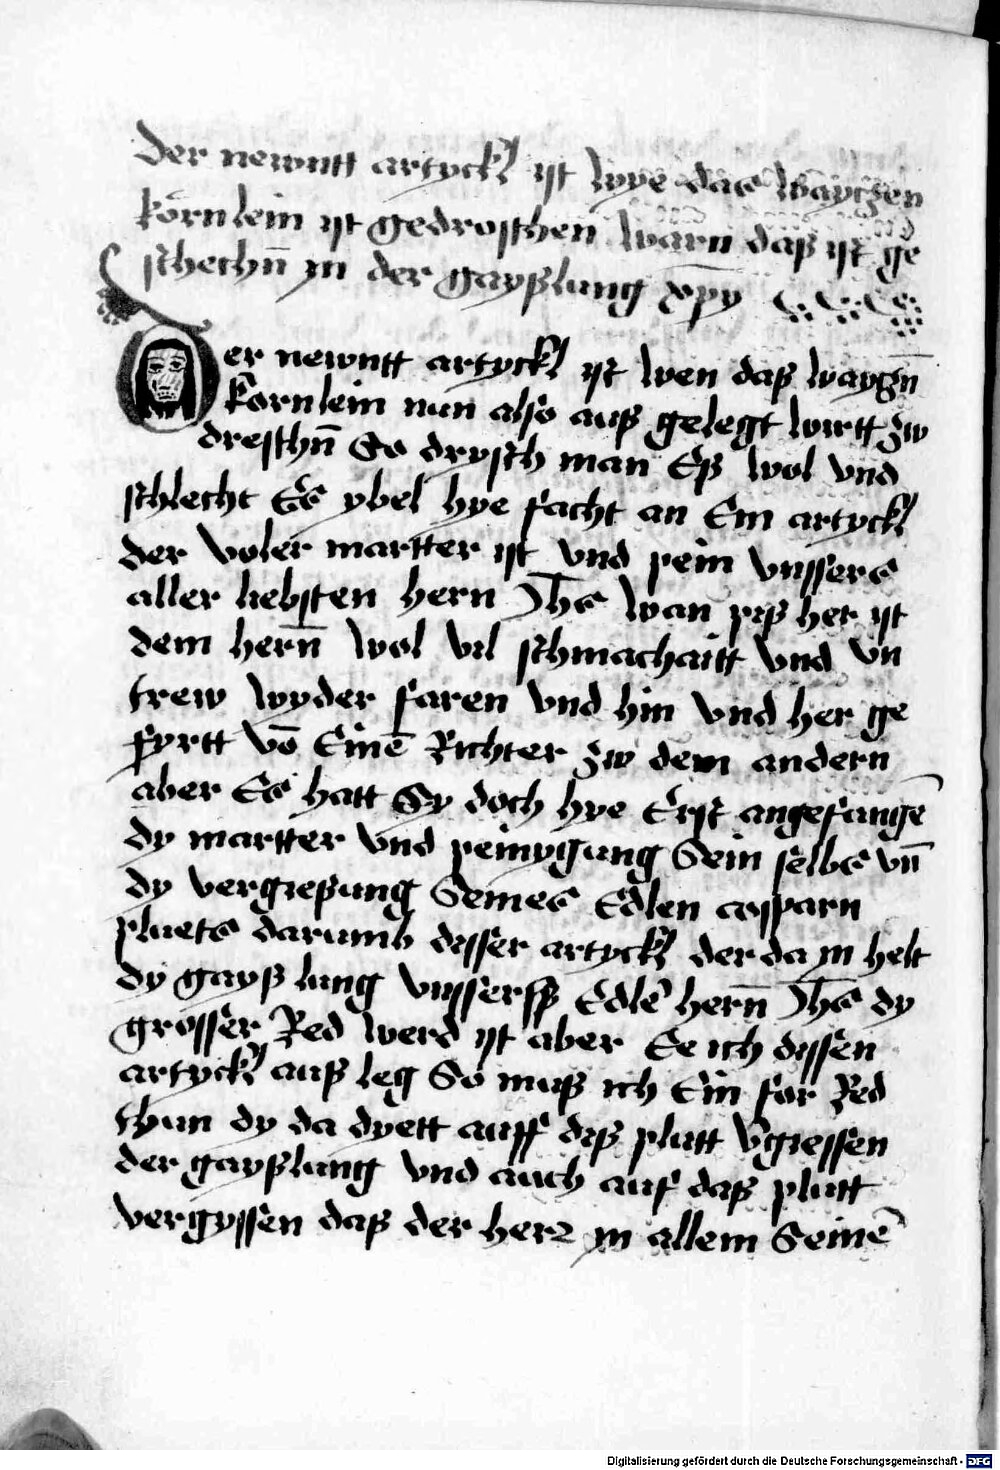 Der newntt artyckl ist wye das waytzen
körnlein ist gedroschen warn daß ist ge
schechn̄ in der gayßlung xp̄y
Der newntt artyckl ist wen daß waytzn̄
körnlein nun also auß gelegt wirtt zw
dreschn̄ So drysch man Eß wol vnd
schlecht Es ybel hye facht an Ein artyckl
der voler martter ist vnd pein vnssers
aller liebsten hern Jh̄s wan piß her ist
dem hern̄ wol vil schmachaitt vnd vn
trew wyder faren vnd hin vnd her ge
fyrtt vō Einē Richter zw dem andern
aber Es hatt Sy doch hye Erst angefangē
dy martter vnd peinygung Sein selbs vn̄
dy vergießung Seines Edlen cosparn
pluets darumb disser artyckl der da in helt
dy gayßlung vnsserß Edlē hern̄ Jh̄s dy
grosser Red werd ist aber Ee ich dissen
artyckl auß leg So muß ich Ein for Red
thun dy da dyett auff diß plutt v̄giessen
der gayßlung vnd auch auf daß plutt
vergyssen daß der herr in allem Seinē
Digitalisierung gefördert durch die Deutsche Forschungsgemeinschaft - DFG